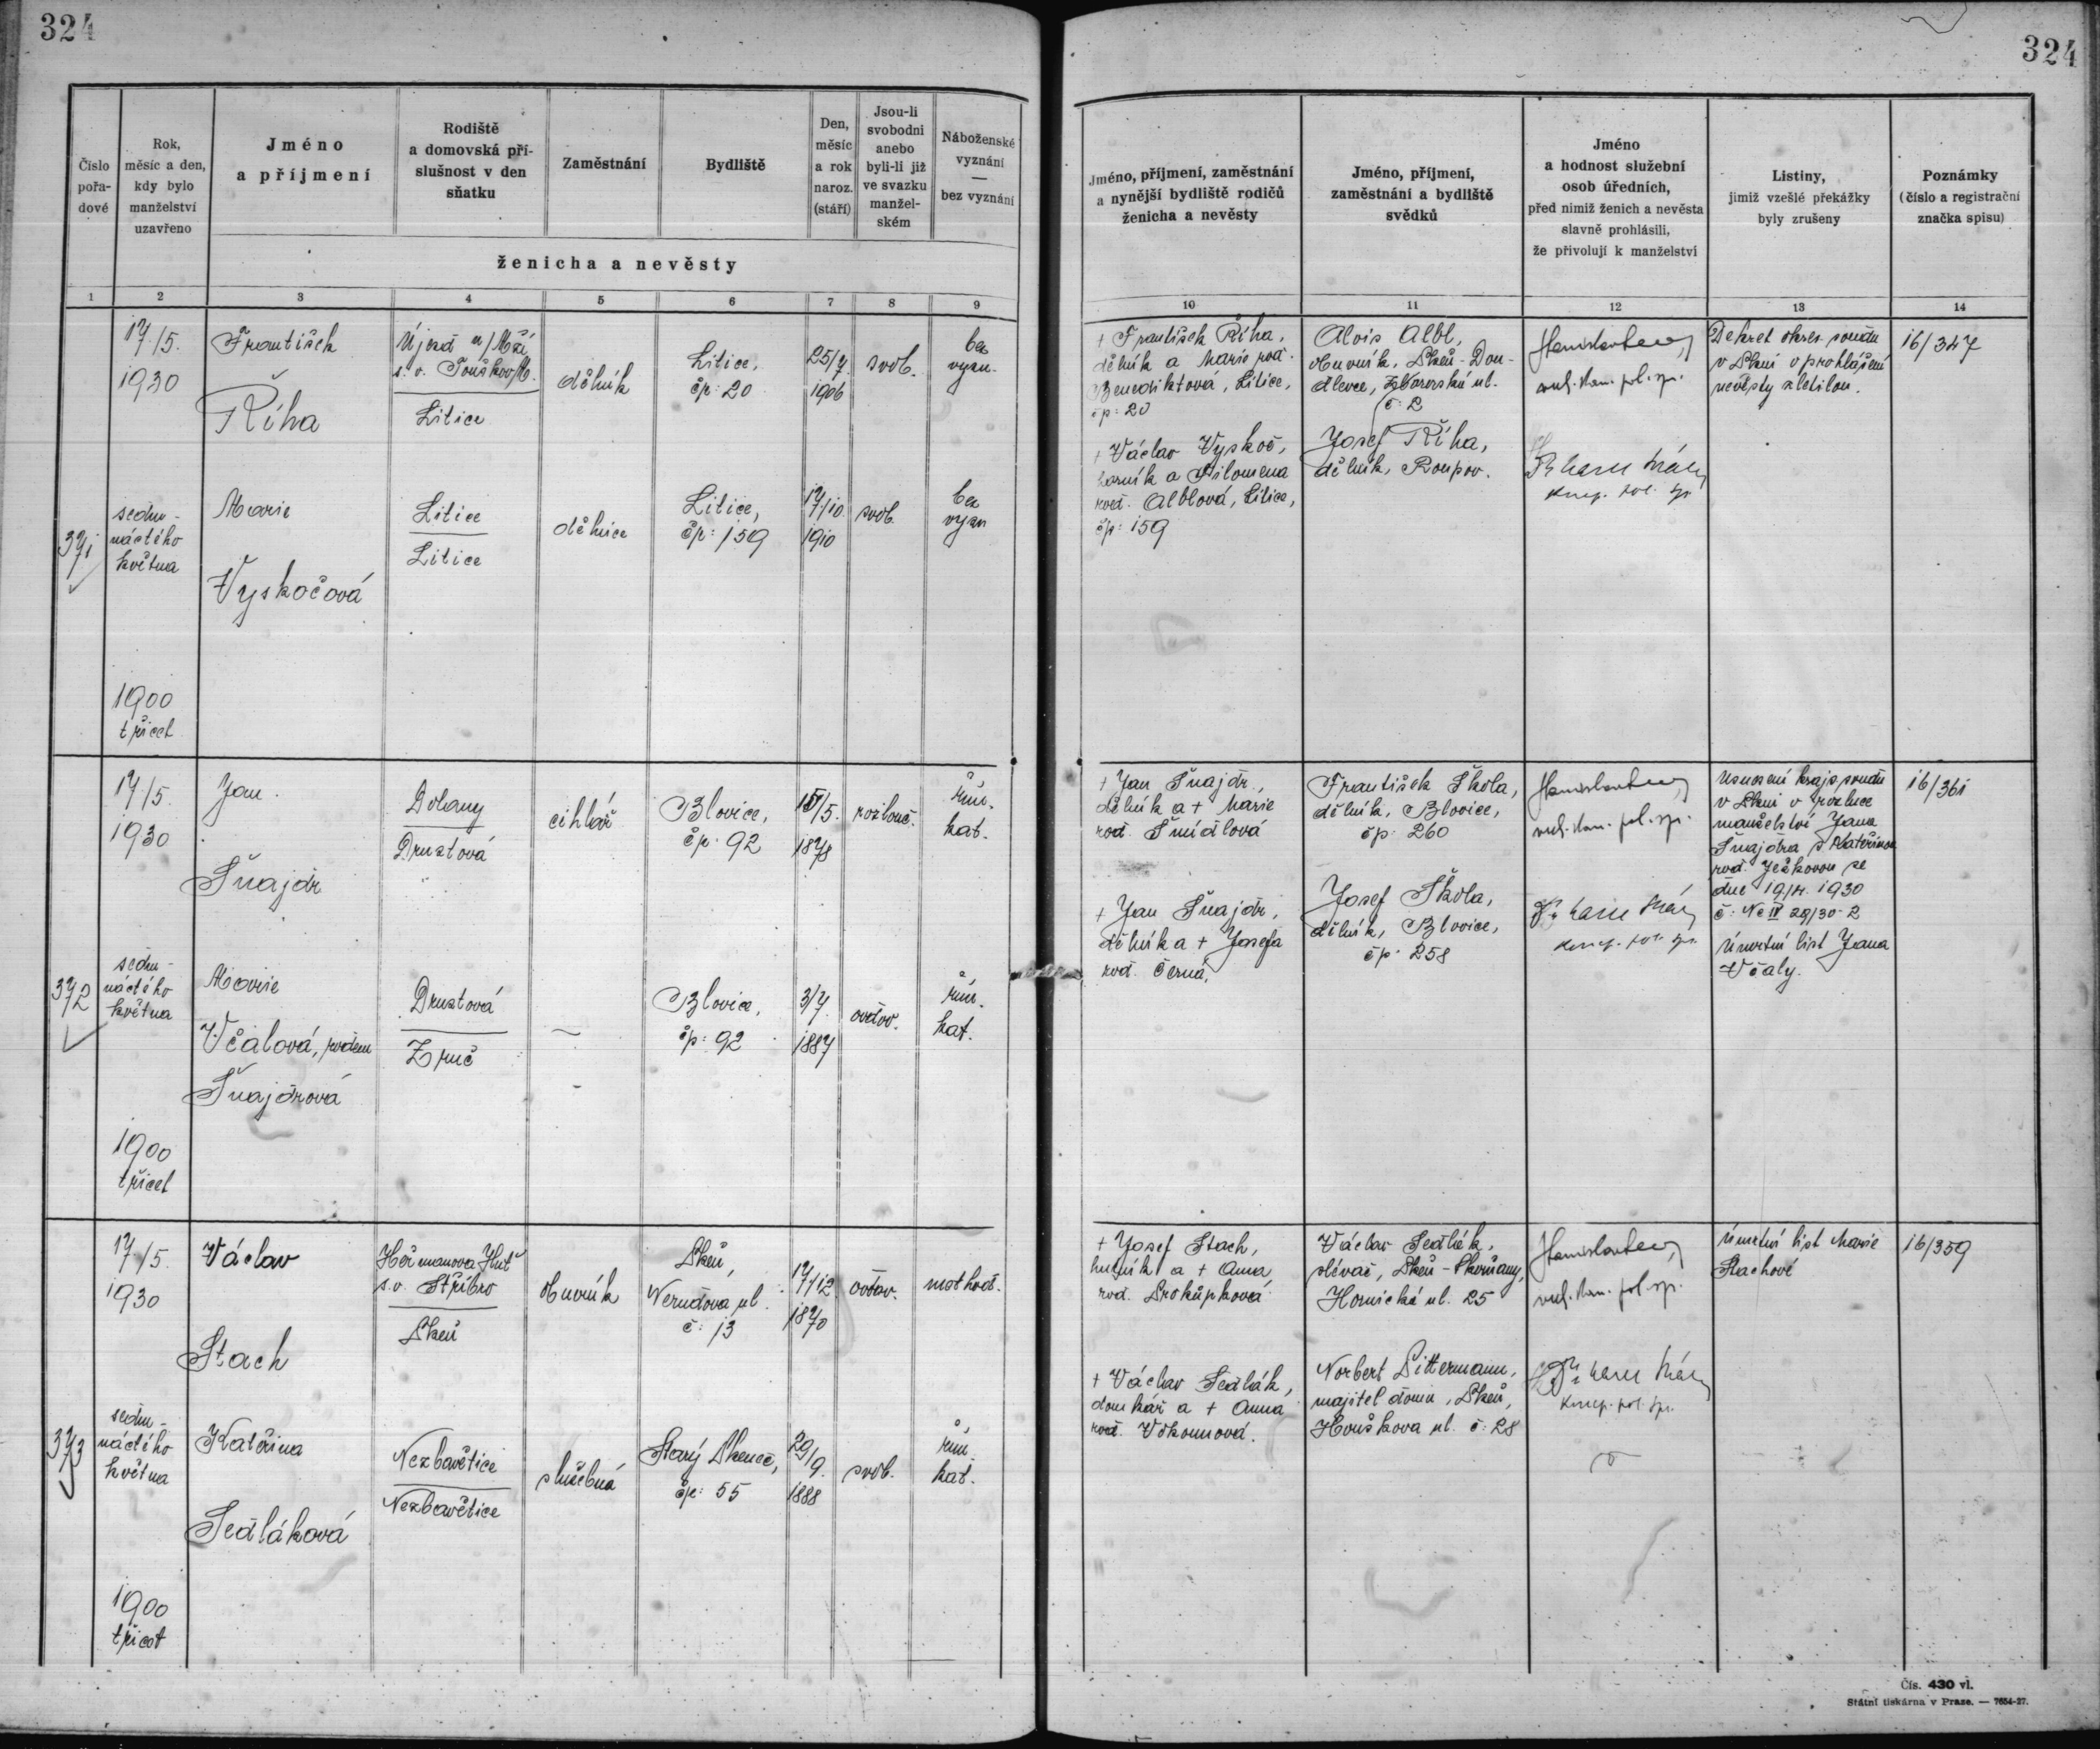 324
324
Číslo pořa- dové
Rok, měsíc a den, kdy bylo manželství uzavřeno
Jméno a příjmení
Rodiště a domovská pří- slušnost v den sňatku
Zaměstnání
Bydliště
Den, měsíc a rok naroz. (stáří)
Jsou-li svobodni anebo byli-li již ve svazku manžel- ském
Náboženské vyznání — bez vyznání
ženicha a nevěsty
Jméno, příjmení, zaměstnání a nynější bydliště rodičů ženicha a nevěsty
Jméno, příjmení, zaměstnání a bydliště svědků
Jméno a hodnost služební osob úředních, před nimiž ženich a nevěsta slavně prohlásili, že přivolují k manželství
Listiny, jimiž vzešlé překážky byly zrušeny
Poznámky (číslo a registrační značka spisu)
1 2 3 4 5 6 7 8 9 10 11 12 13 14
371
17/5.
1930
sedm-
náctého
května
1900
třicet
František
Říha
Újezd n/Mží
s. o. Touškov/M.
Litice
dělník
Litice,
čp: 20
25/7.
1906
svob.
bez
vyzn.
Marie
Vyskočová
Litice
Litice
dělnice
Litice,
čp: 159
17/10.
1910
svob.
bez
vyzn
+ František Říha,
dělník a Marie rod.
Benediktová, Litice,
čp: 20
+ Václav Vyskoč,
horník a Filomena
rod. Alblová, Litice,
čp: 159
Alois Albl,
obuvník, Plzeň-Dou-
dlevce, Zborovská ul.
č: 2
Josef Říha,
dělník, Roupov.
Dekret okres. soudu
v Plzni o prohlášení
nevěsty zletilou.
16/347
372
17/5.
1930
sedm-
náctého
května
1900
třicet
Jan
Šnajdr
Dolany
Druztová
cihlář
Blovice,
čp: 92
/5.
1878
rozlouč.
řím.
kat.
Marie
Včalová, rodem
Šnajdrová
Druztová
Zruč
Blovice,
čp: 92
3/7.
1887
ovdov.
řím.
kat.
+ Jan Šnajdr,
dělník a + Marie
rod. Šmídlová
+ Jan Šnajdr,
dělník a + Josefa
rod. Černá.
František Škola,
dělník, Blovice,
čp: 260
Josef Škola,
dělník, Blovice,
čp: 258
Usnesení krajs. soudu
v Plzni o rozluce
manželství Jana
Šnajdra s Kateřinou
rod. Ježkovou ze
dne 19/4. 1930
č: Nc IV 28/30-2
Úmrtní list Jana
Včaly.
16/361
373
17/5.
1930
sedm-
náctého
května
1900
třicet
Václav
Stach
Heřmanova Huť
s. o. Stříbro
Plzeň
obuvník
Plzeň,
Nerudova ul.
č: 13
17/12.
1870
ovdov.
method.
Kateřina
Sedláková
Nezbavětice
Nezbavětice
služebná
Starý Plzenec,
čp: 55
29/9.
1888
svob.
řím.
kat.
+ Josef Stach,
hutník a + Anna
rod. Prokůpková
+ Václav Sedlák,
domkář a + Anna
rod.
Václav Sedlák,
slévač, Plzeň-Skvrňany,
Hornická ul. 25
Norbert Pittermann,
majitel domu, Plzeň,
Houškova ul. č: 28
Úmrtní list Marie
Stachové
16/359
Čís. 430 vl.
Státní tiskárna v Praze. — 7654-27.